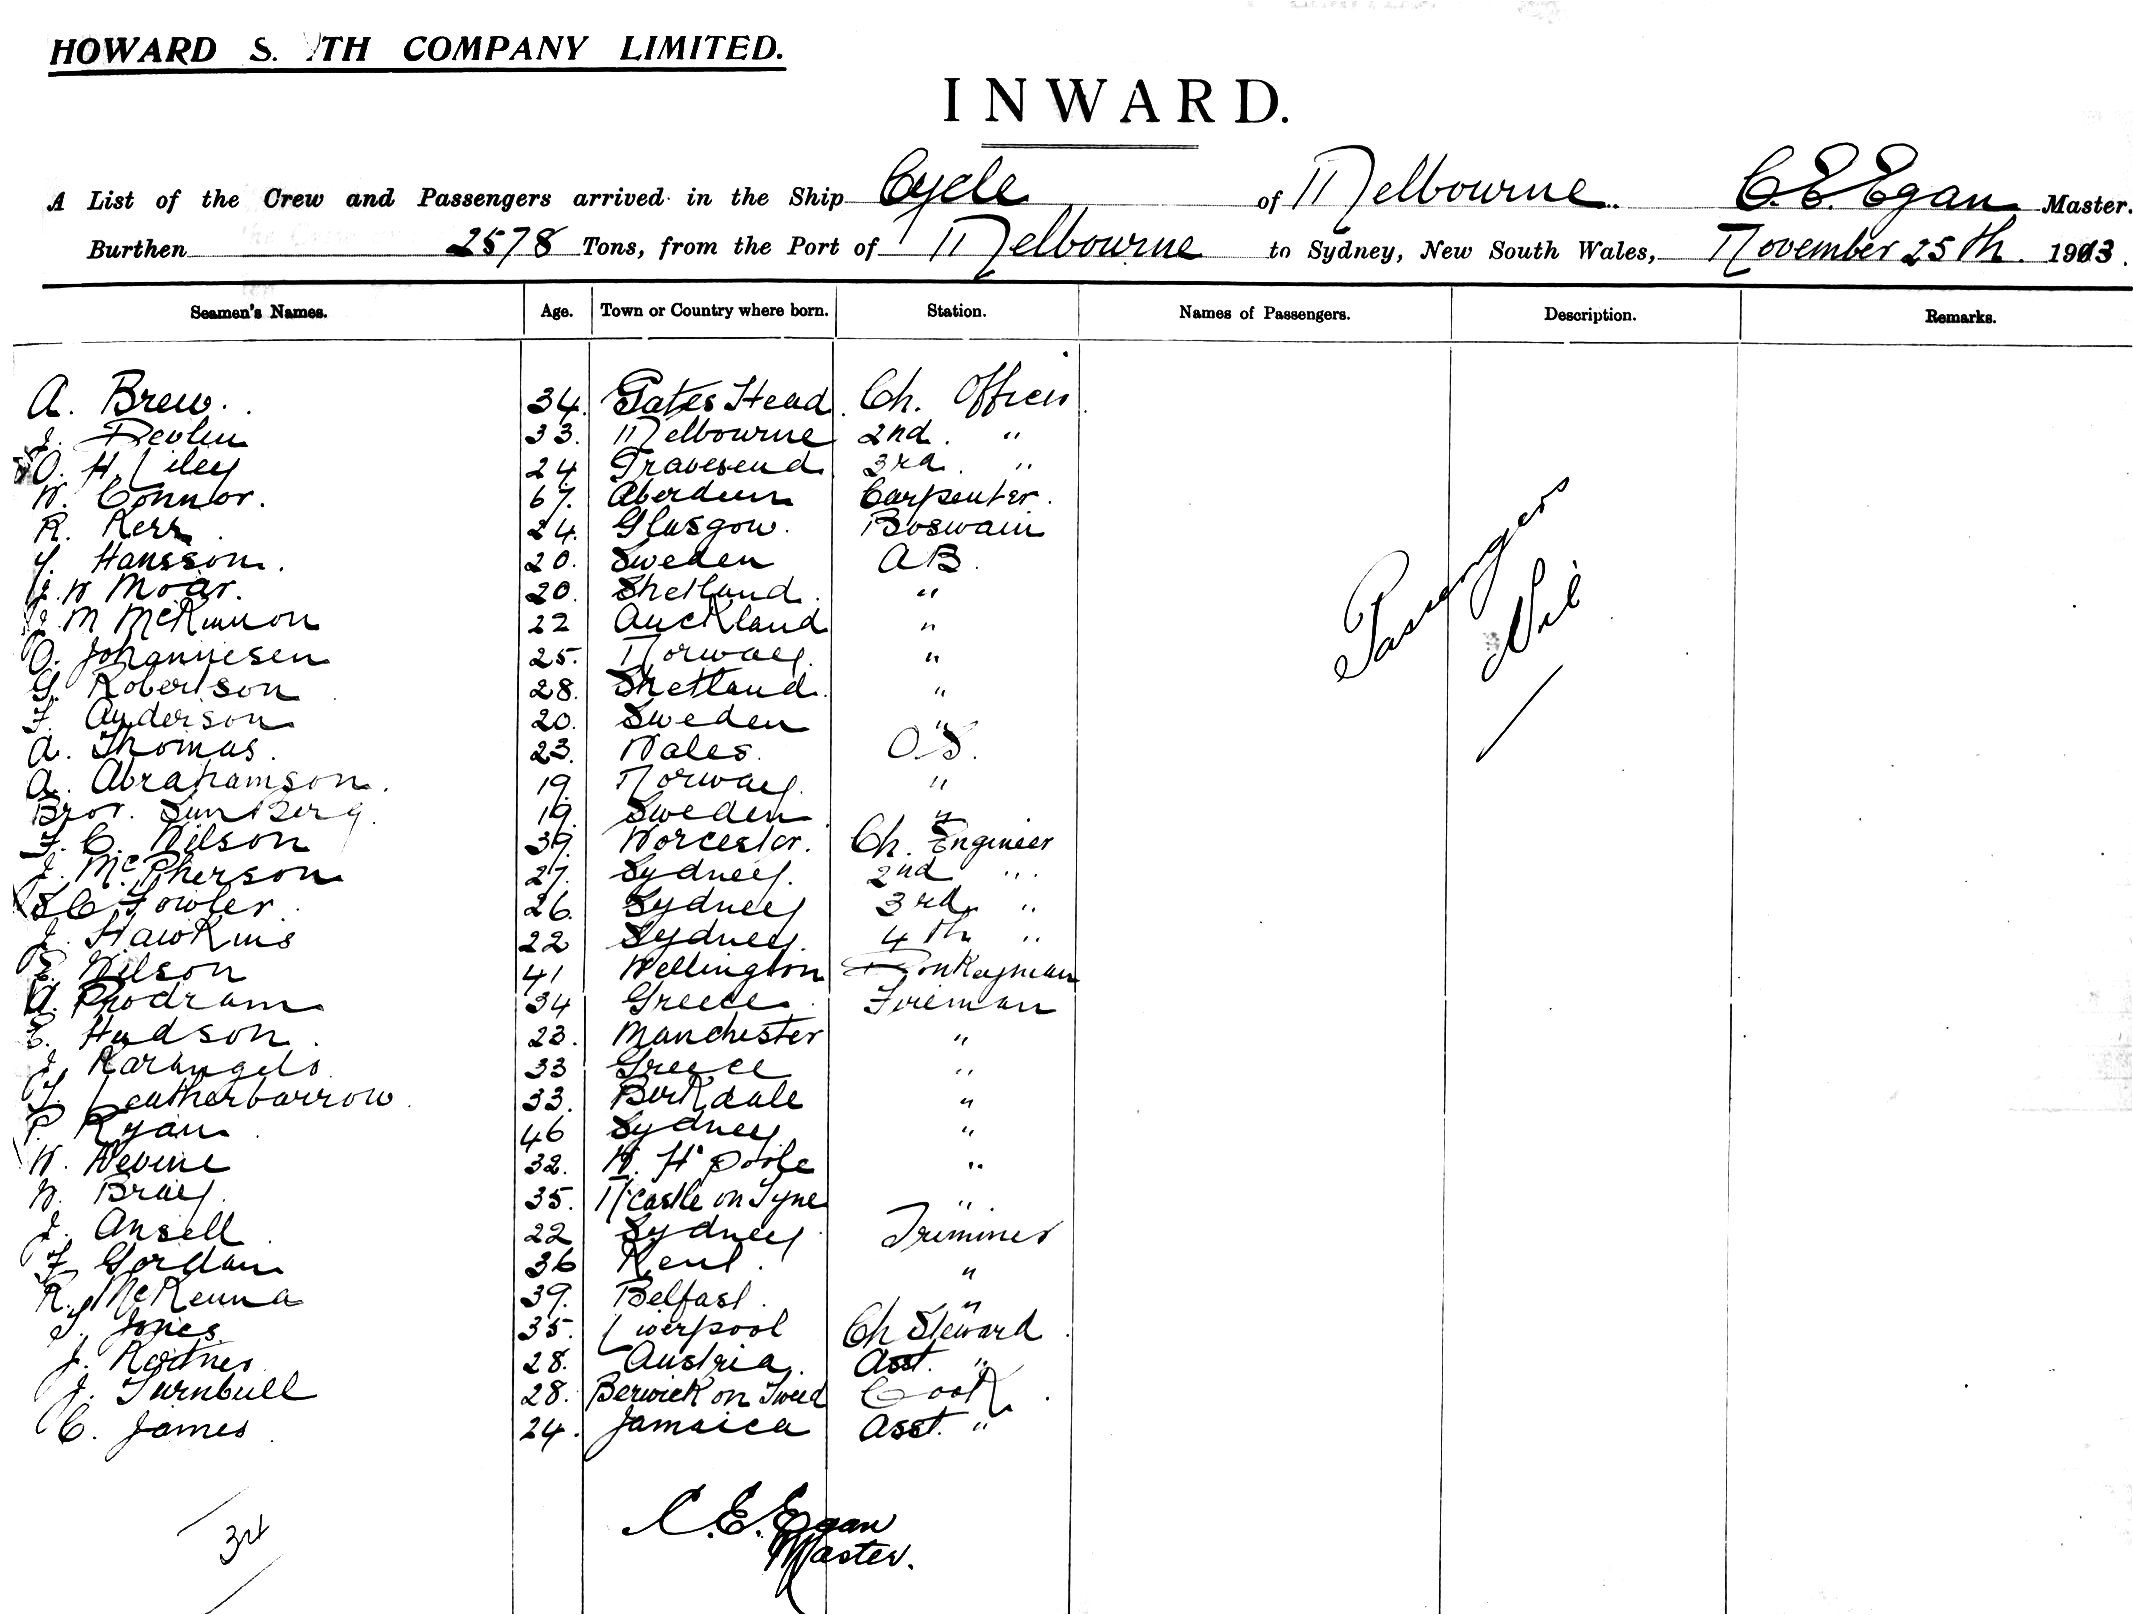 HOWARD S. TH COMPANY LIMITED.
INWARD.
A List of the Crew and Passengers arrived in the Ship Cycle of Melbourne C.E. Egan Master.
Burthen 2578 Tons, from the Port of Melbourne to Sydney, New South Wales, November 25th 1913.
Seamen's Names. Age. Town or Country where born. Station. Names of Passengers. Description. Remarks.
A. Brew. 34. Gates Head Ch. Officer
J. Devlin 33. Melbourne 2nd. "
O. H. Liley 24 Gravesend 3rd. "
W. Connor. 67. Aberdeen Carpenter.
R. Kerr 24. Glasgow. Boswain
Y. Hansson. 20. Sweden AB.
J. W Moar. 20. Shetland. "
J. M McKinnon 22 Auckland "
O. Johannesen 25. Norway. "
G. Robertson 28. Shetland. "
F. Anderson 20. Sweden "
A. Thomas. 23. Wales. OS.
A. Abrahamson. 19. Norway. "
Bror. SunBerg. 19. Sweden "
F. C. Wilson 39. Worcester. Ch. Engineer
J. McPherson 27. Sydney. 2nd "
S C Fowler. 26. Sydney 3rd. "
J. Hawkins 22 Sydney. 4th "
E. Wilson 41 Wellington Donkeyman
A. Prodram 34 Greece. Fireman
E. Hudson. 23. Manchester "
J. Karangelo 33 Greece "
T. Leatherbarrow. 33. Birkdale "
P. Ryan. 46 Sydney. "
W. Nevine 32. W. H'poole "
W. Bray. 35. N'castle on Tyne "
J. Ansell. 22 Sydney. Trimmer
F. Gordan 36 Kent. "
R. McKenna 39. Belfast. "
J. Jones. 35. Liverpool Ch Steward.
J. 28. Austria. Asst. "
J. Turnbull 28. Berwick on Tweed Cook.
C. James. 24. Jamaica Asst. "
Passengers
Nil
C. E. Egan
Master.
34